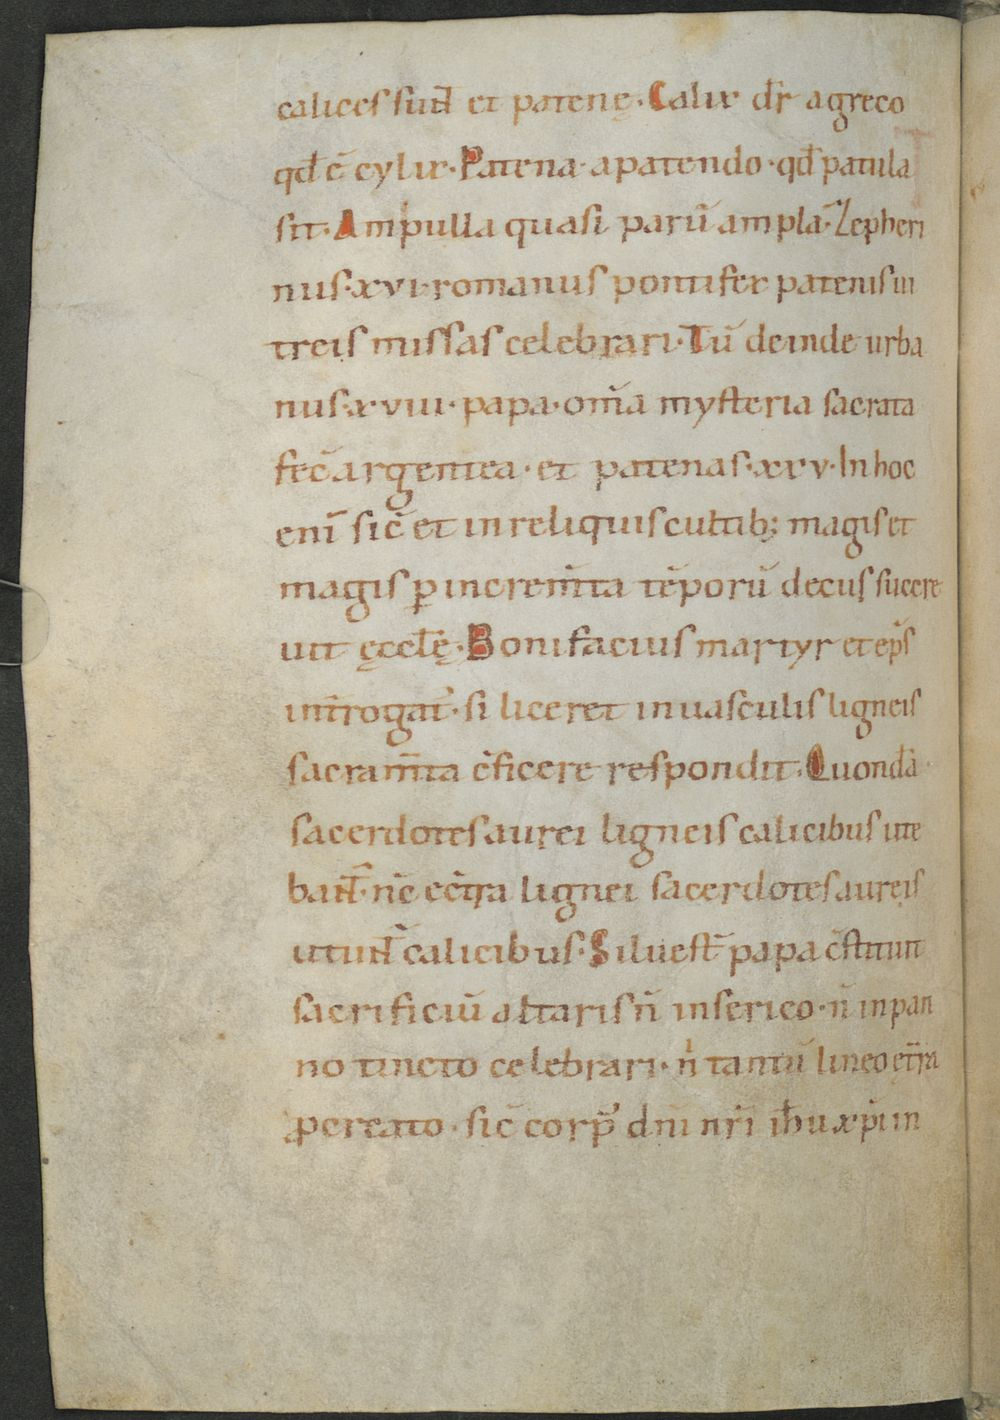 calices sunt̄ et patenę. Calix dr̄ a greco
qd̄ ē cylix. Patena. a patendo. qd̄ patula
sit. Ampulla quasi parū ampla. Zepheri
nus. xvi. romanus pontifex patenis ui
treis missas celebrari. Tū deinde urba
nus. xviii. papa. om̄a mysteria sacrata
fec̄ argentea. et patenas. xxv. In hoc
enī sic̄ et in reliquis cultib; magis et
magis ꝑ increm̄ta tēporū decus succre
uit ęccl̄ę. Bonifacius martyr et ep̄s
int̄rogat᷒. si liceret in uasculis ligneis
sacram̄ta c̄ficere respondit. Quondā
sacerdotes aurei ligneis calicibus ute
bant᷒. nc̄ ec̄tra lignei sacerdotes aureis
utunt᷒ calicibus. Siluest̄ papa c̄stituit
sacrificiū altaris n̄ in serico. n̄ in pan
no tincto celebrari. n̄ tantū lineo et̄ra
ꝓcreato. sic̄ corp᷒ dn̄i nr̄i ih̄u xp̄i in